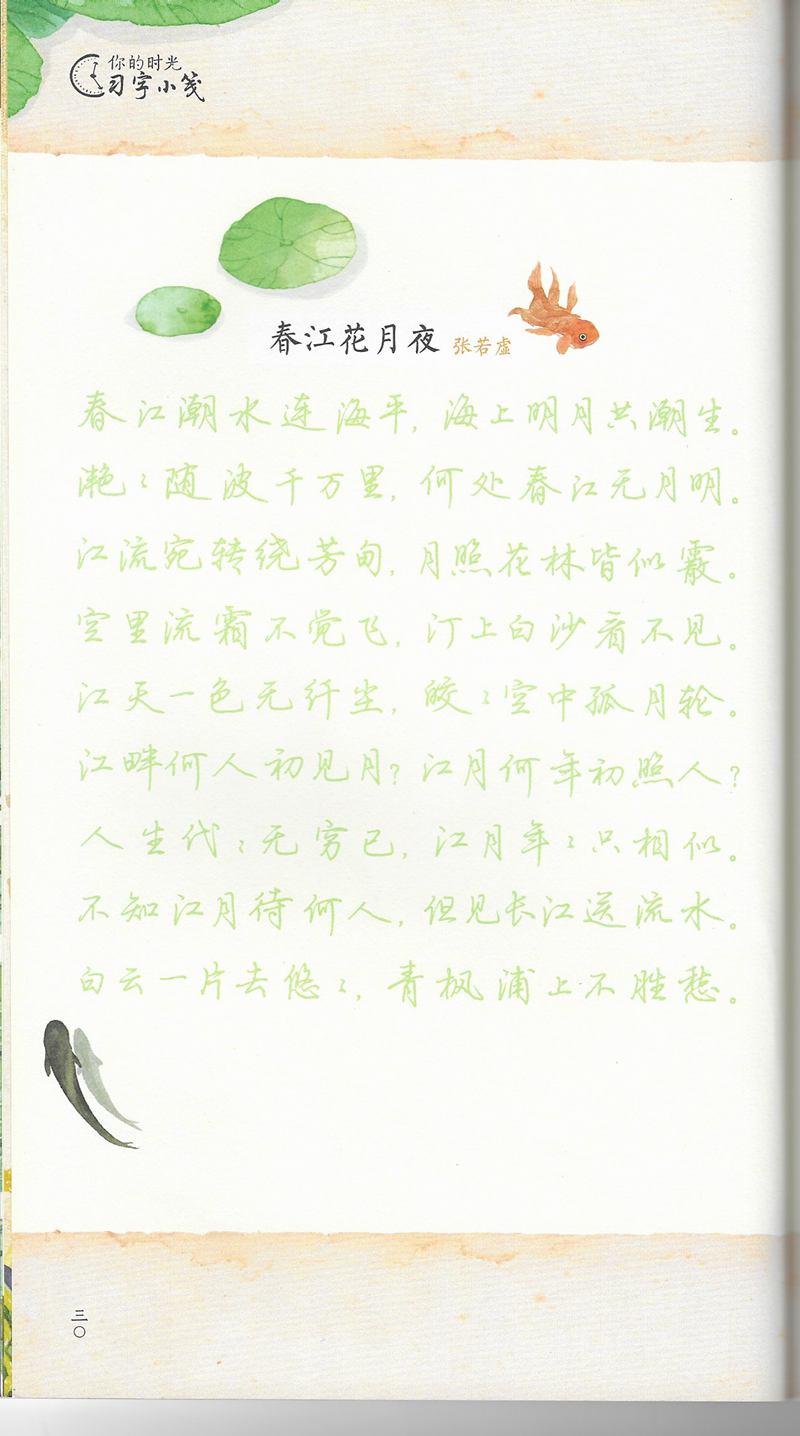 你的时光
习字小笺
春江花月夜 张若虚
春江潮水连海平，海上明月共潮生。
滟滟随波千万里，何处春江无月明。
江流宛转绕芳甸，月照花林皆似霰。
空里流霜不觉飞，汀上白沙看不见。
江天一色无纤尘，皎皎空中孤月轮。
江畔何人初见月？江月何年初照人？
人生代代无穷已，江月年年只相似。
不知江月待何人，但见长江送流水。
白云一片去悠悠，青枫浦上不胜愁。
三〇